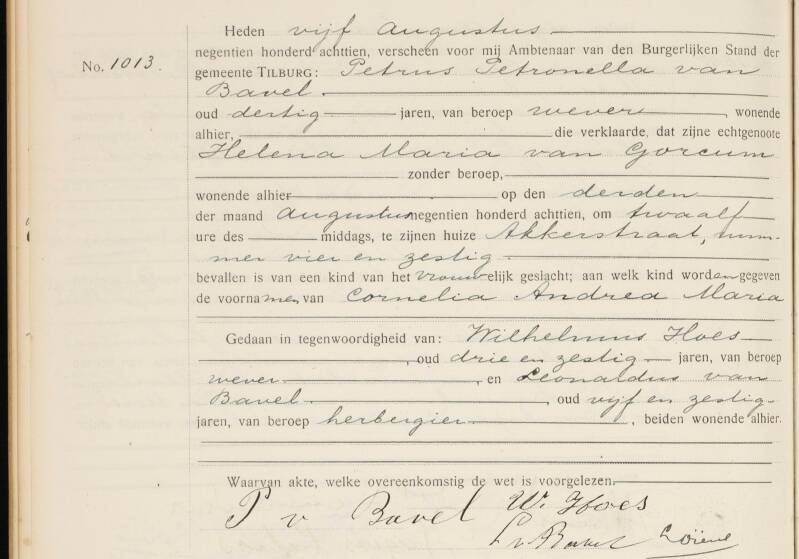 Heden vijf Augustus
No. 1013.
negentien honderd achttien, verscheen voor mij Ambtenaar van den Burgerlijken Stand der
gemeente TILBURG: Petrus Petronella van
Bavel.
oud dertig jaren, van beroep wever, wonende
alhier, die verklaarde, dat zijne echtgenoote
Helena Maria van Gorcum
zonder beroep,
wonende alhier op den derden
der maand Augustus negentien honderd achttien, om twaalf
ure des middags, te zijnen huize Akkerstraat, num-
mer vier en zestig.
bevallen is van een kind van het vrouwelijk geslacht; aan welk kind worden gegeven
de voornamen van Cornelia Andrea Maria
Gedaan in tegenwoordigheid van: Wilhelmus Hoes
, oud drie en zestig jaren, van beroep
wever, en Leonaldus van
Bavel., oud vijf en zestig
jaren, van beroep herbergier, beiden wonende alhier.
Waarvan akte, welke overeenkomstig de wet is voorgelezen.
P v Bavel W. Hoes
L v Bavel